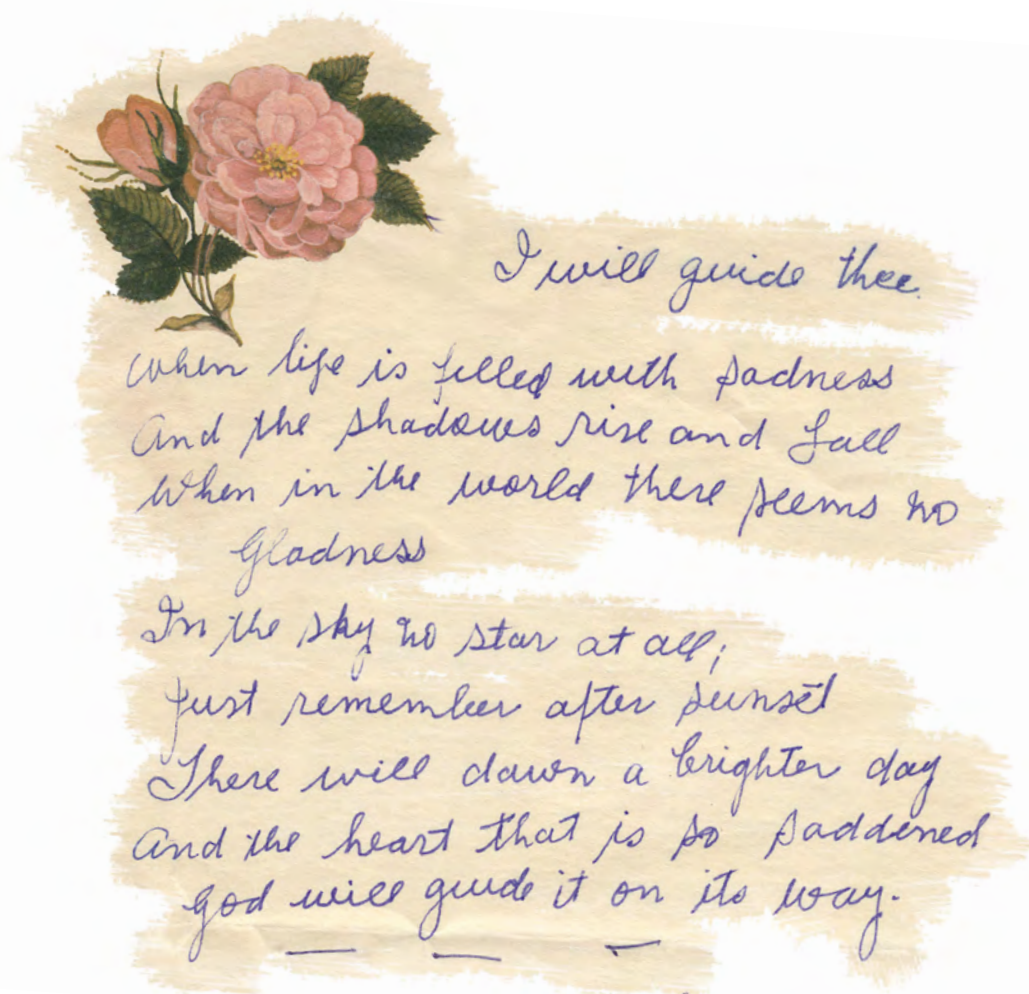 I will guide thee.
When life is filled with sadness
And the shadows rise and fall
When in the world there seems no
Gladness
In the sky no star at all;
Just remember after sunset
There will dawn a brighter day
And the heart that is so saddened
God will guide it on its way.